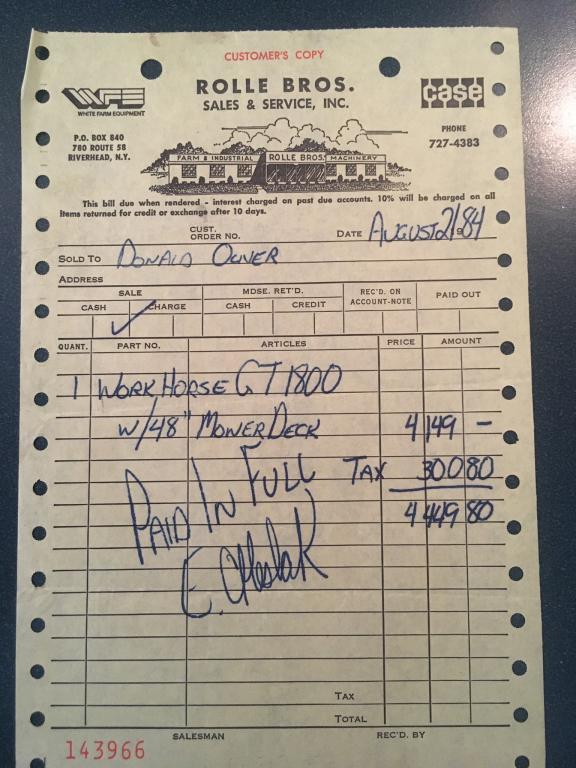 CUSTOMER'S COPY
WFE
WHITE FARM EQUIPMENT
ROLLE BROS.
SALES & SERVICE, INC.
case
P.O. BOX 840
780 ROUTE 58
RIVERHEAD, N.Y.
PHONE
727-4383
FARM & INDUSTRIAL ROLLE BROS. MACHINERY
This bill due when rendered - interest charged on past due accounts. 10% will be charged on all
items returned for credit or exchange after 10 days.
CUST.
ORDER NO.
DATE AUGUST 21 84
SOLD TO DONALD OLIVER
ADDRESS
SALE MDSE. RET'D. REC'D. ON ACCOUNT-NOTE PAID OUT
CASH CHARGE CASH CREDIT
QUANT. PART NO. ARTICLES PRICE AMOUNT
1 WORK HORSE GT 1800
W/48" MOWER DECK 4149 -
TAX 300 80
4449 80
PAID IN FULL
E.
TAX
TOTAL
SALESMAN REC'D. BY
143966